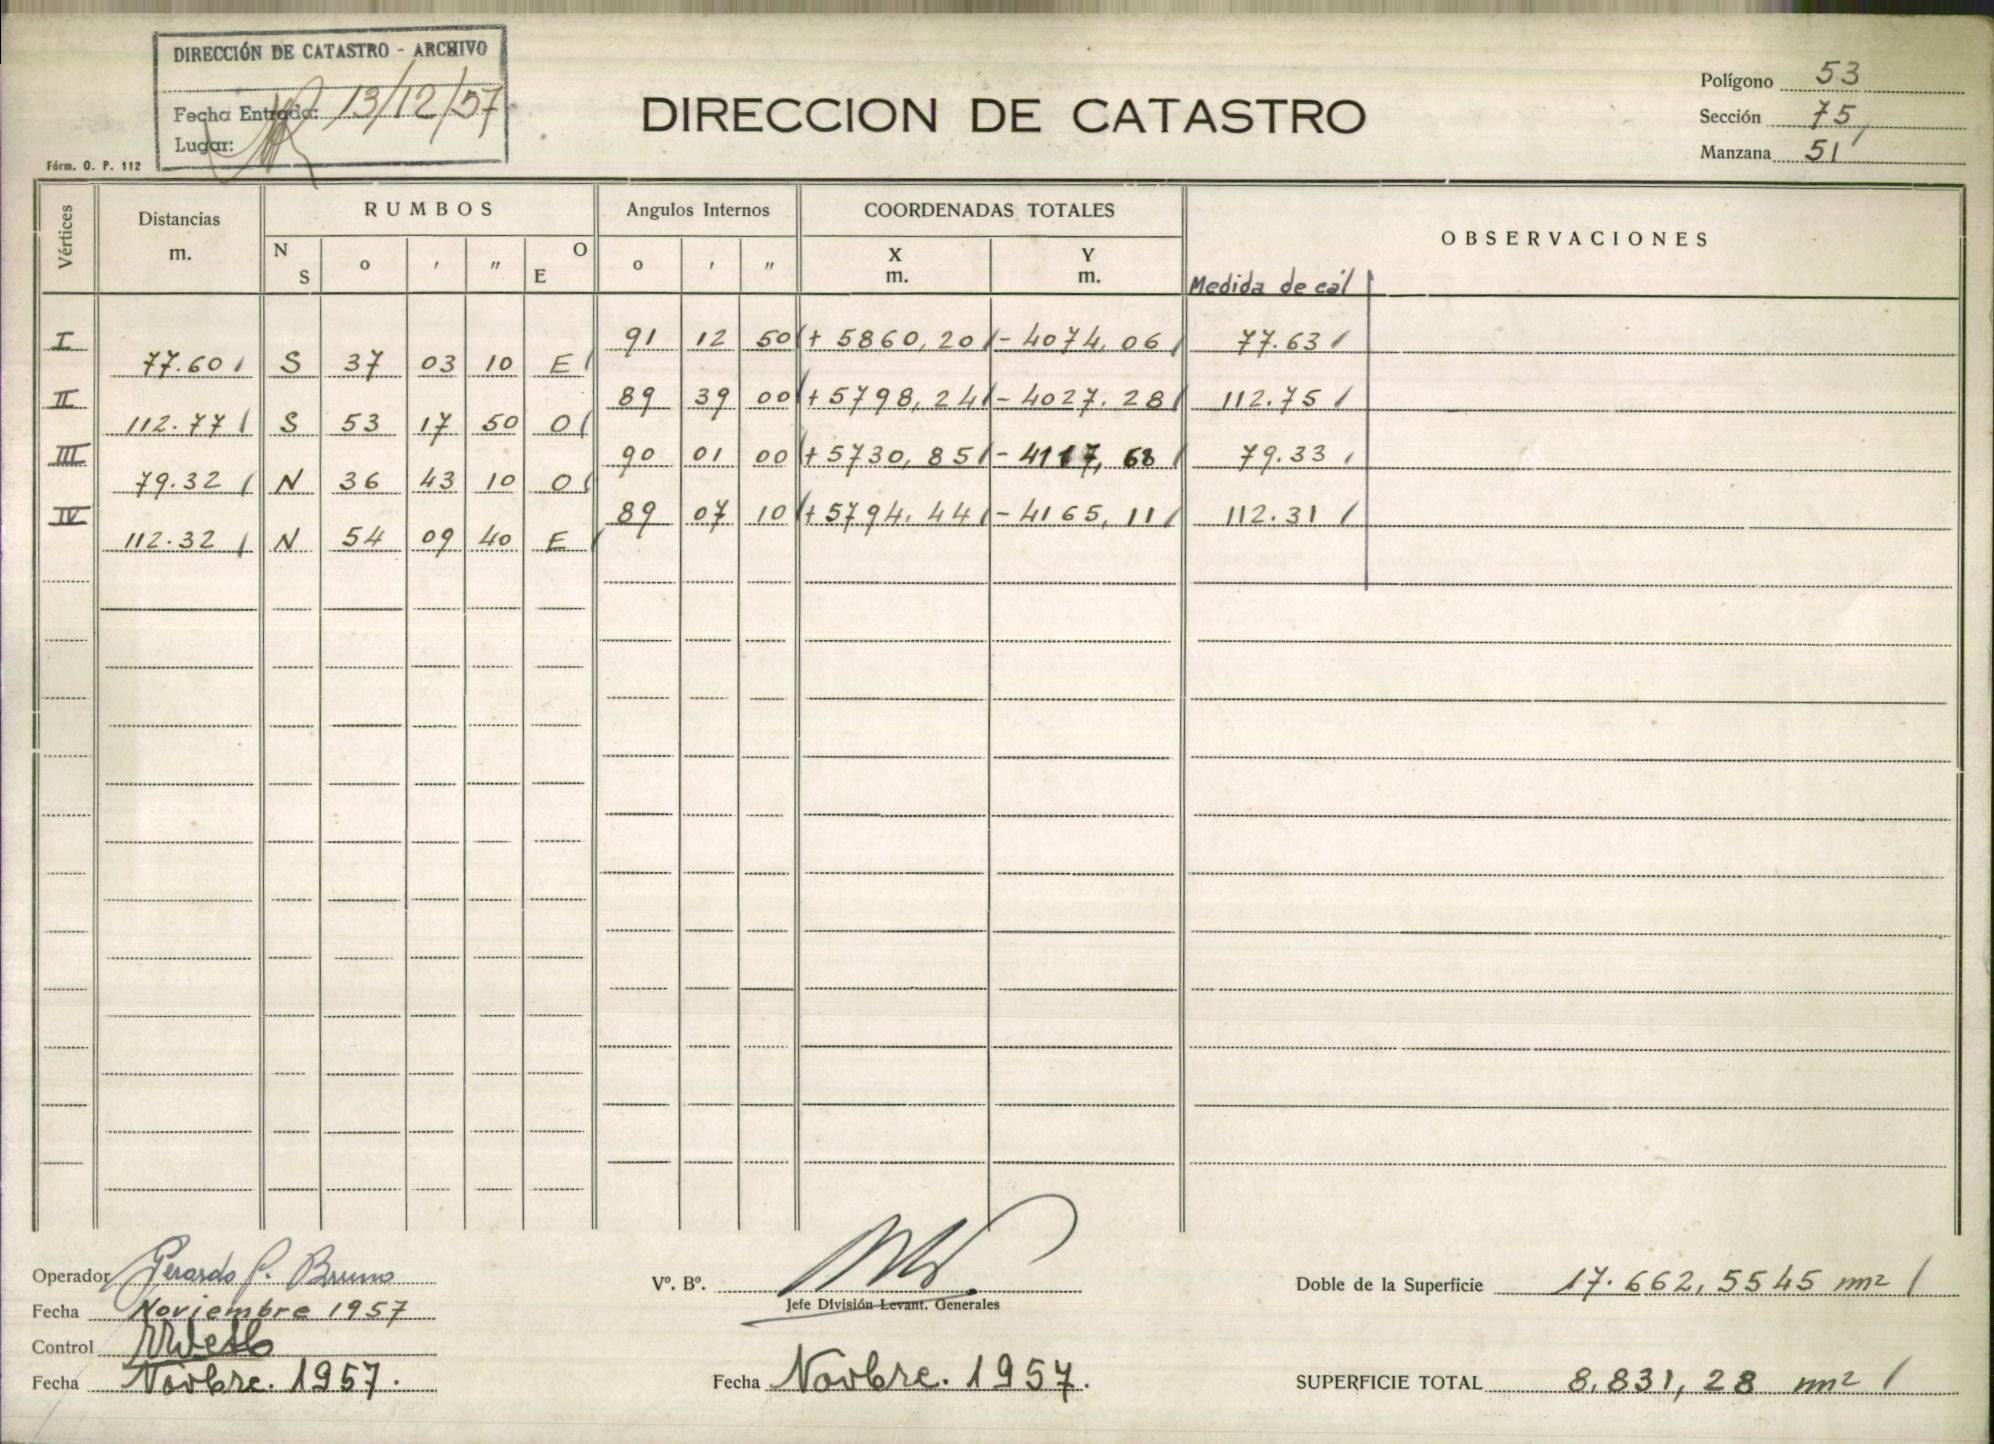 DIRECCIÓN DE CATASTRO - ARCHIVO
Fecha Entrada: 13/12/57
Lugar:
Fórm. O. P. 112
DIRECCION DE CATASTRO
Polígono 53
Sección 75
Manzana 51
Vértices Distancias m. RUMBOS Angulos Internos COORDENADAS TOTALES OBSERVACIONES
N S o ' " O E o ' " X m. Y m. Medida de cál
I 91 12 50 + 5860,20 - 4074,06 77.63
77.60 S 37 03 10 E
II 89 39 00 + 5798,24 - 4027.28 112.75
112.77 S 53 17 50 O
III 90 01 00 + 5730,85 - 4117,68 79.33
79.32 N 36 43 10 O
IV 89 07 10 + 5794.44 - 4165,11 112.31
112.32 N 54 09 40 E
Operador Gerardo P. Bruno
Fecha Noviembre 1957
Control
Fecha Novbre. 1957.
Vº. Bº.
Jefe División Levant. Generales
Fecha Novbre. 1957.
Doble de la Superficie 17.662,5545 m2
SUPERFICIE TOTAL 8.831,28 m2